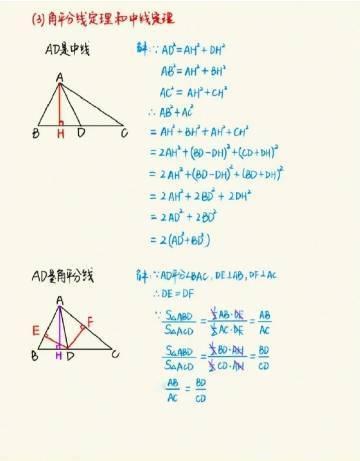 (3)角平分线定理和中线定理
AD是中线
A
B H D C
解:∵AD²=AH²+DH²
AB²=AH²+BH²
AC²=AH²+CH²
∴AB²+AC²
=AH²+BH²+AH²+CH²
=2AH²+(BD-DH)²+(CD+DH)²
=2AH²+(BD-DH)²+(BD+DH)²
=2AH²+2BD²+2DH²
=2AD²+2BD²
=2(AD²+BD²)
AD是角平分线
A
E F
B H D C
解:∵AD平分∠BAC,DE⊥AB,DF⊥AC
∴DE=DF
∵ S△ABD/S△ACD = ½AB·DE/½AC·DE = AB/AC
S△ABD/S△ACD = ½BD·AH/½CD·AH = BD/CD
AB/AC = BD/CD